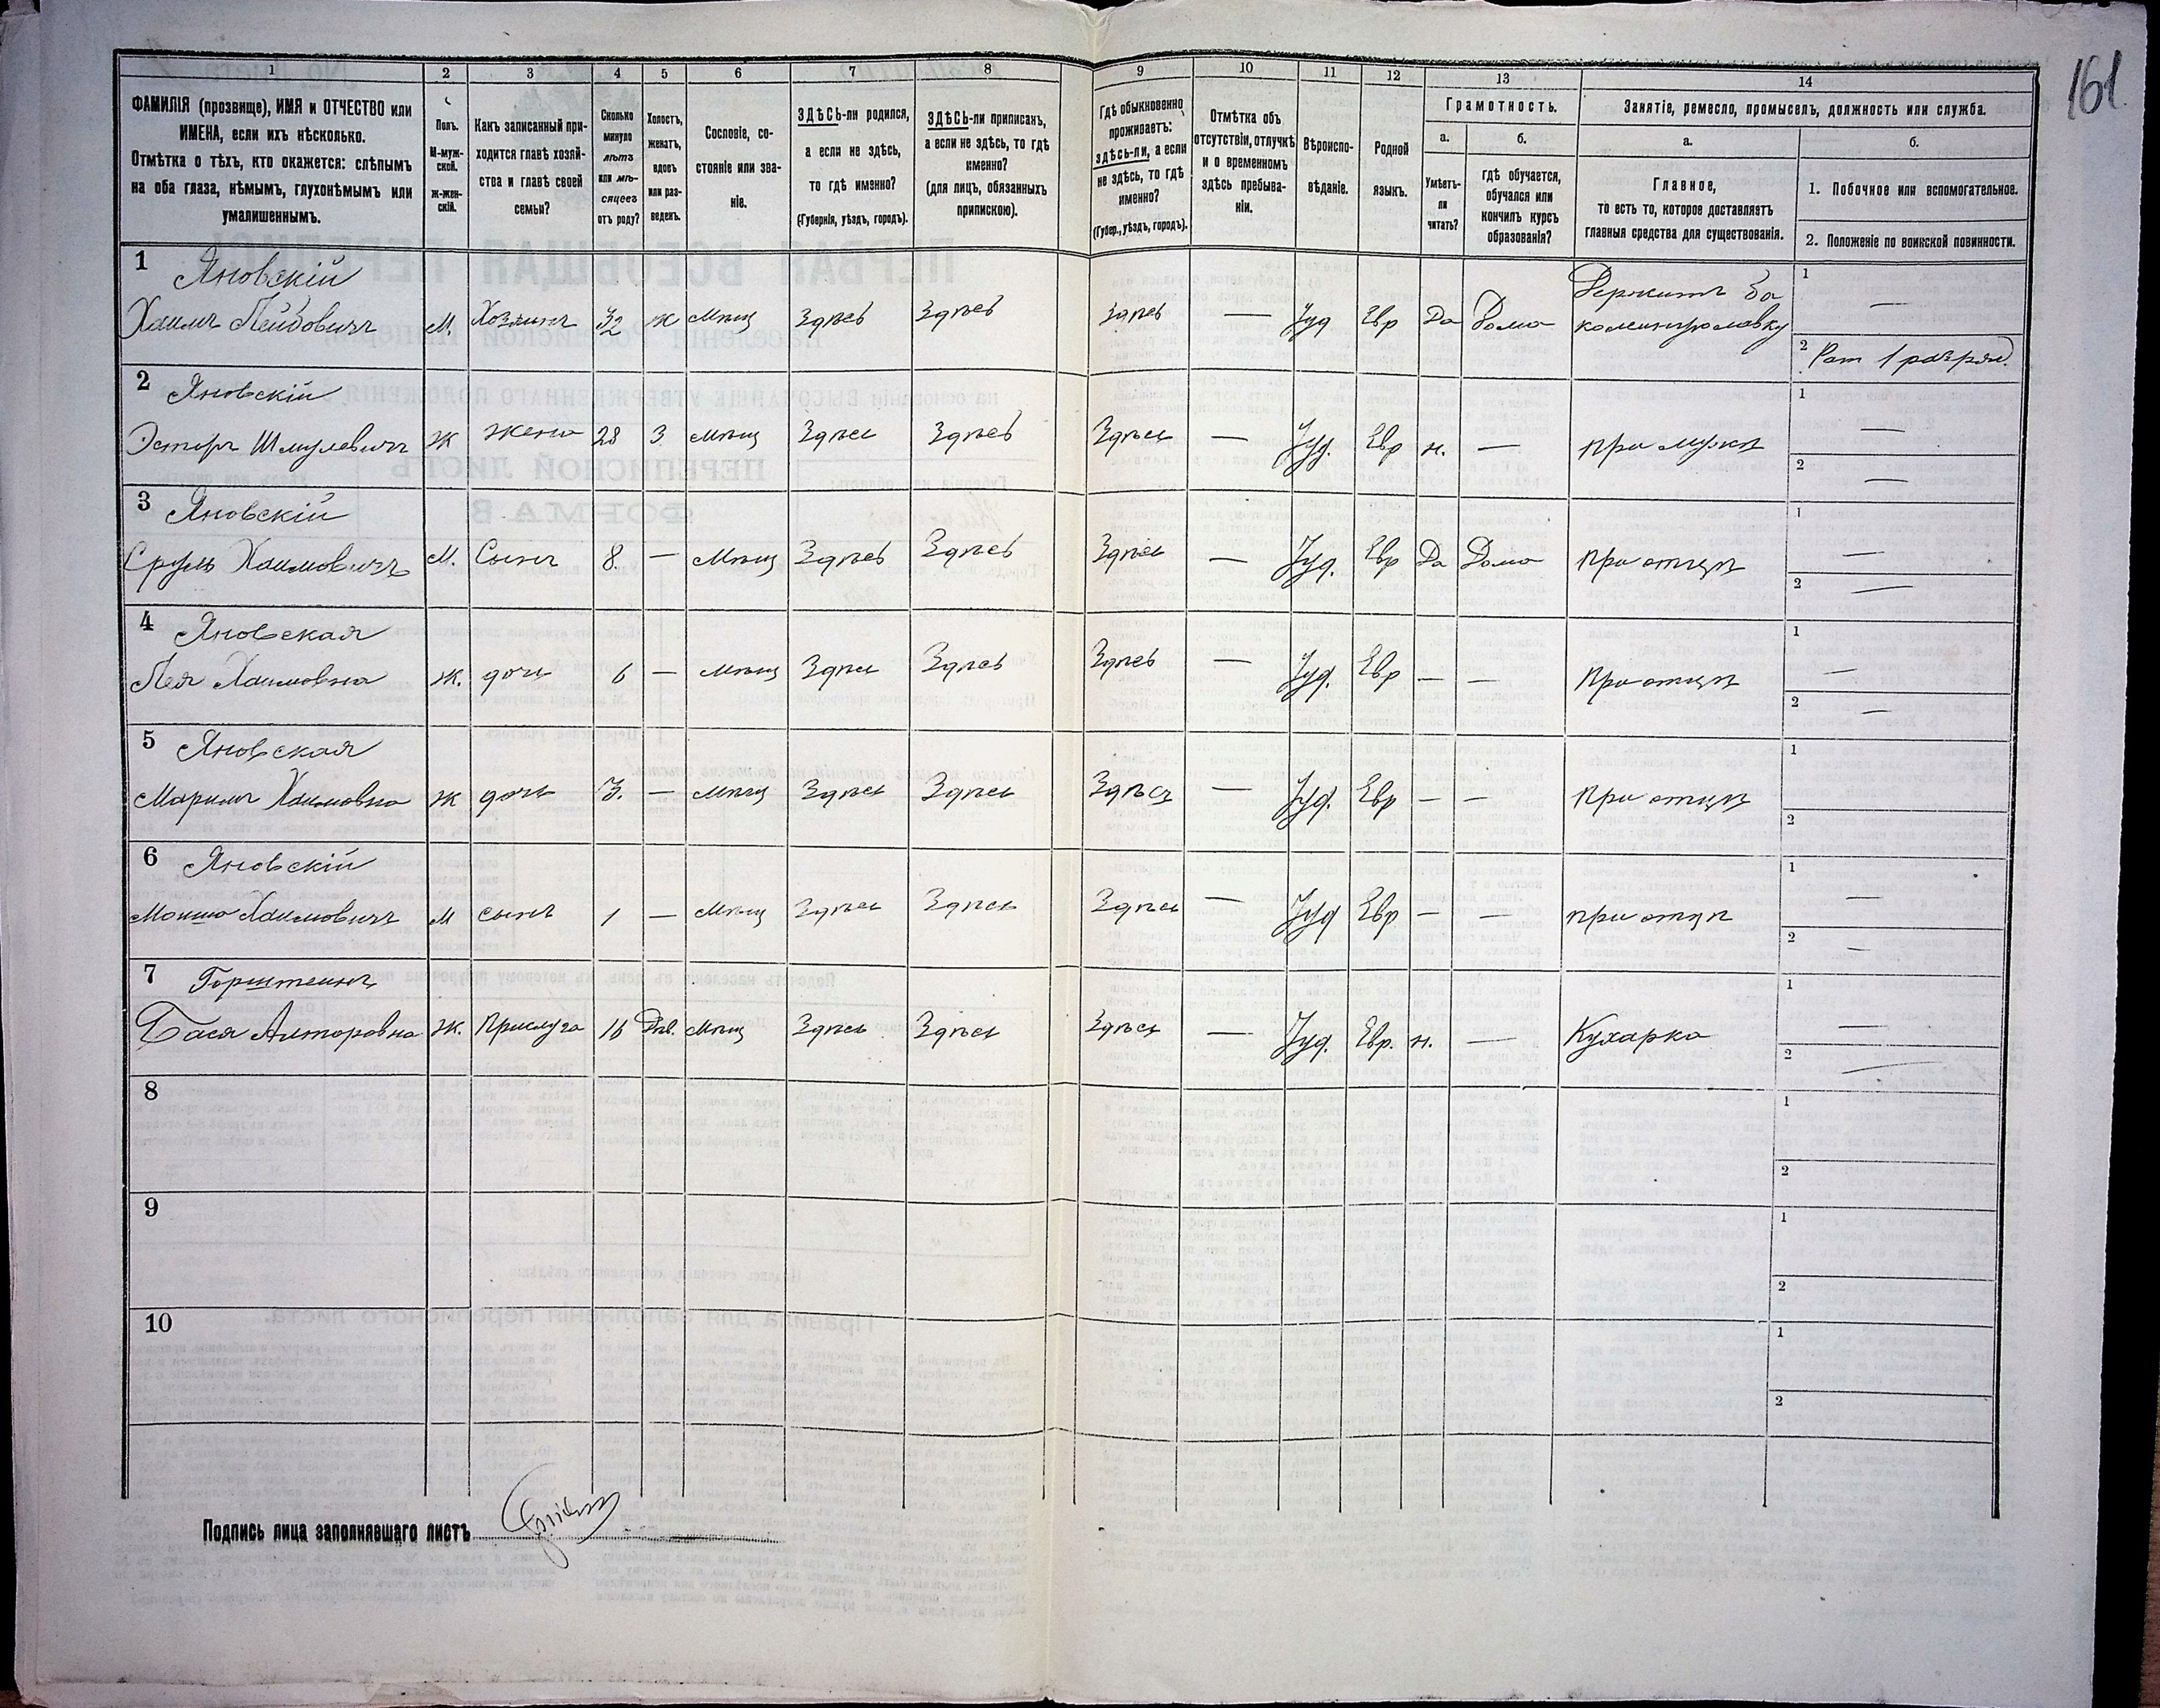 161
1 2 3 4 5 6 7 8 9 10 11 12 13 14
ФАМИЛІЯ (прозвище), ИМЯ и ОТЧЕСТВО или
ИМЕНА, если ихъ нѣсколько.
Отмѣтка о тѣхъ, кто окажется: слѣпымъ
на оба глаза, нѣмымъ, глухонѣмымъ или
умалишеннымъ.
Полъ.
М-муж-
ской.
ж-жен-
скій.
Какъ записанный при-
ходится главѣ хозяй-
ства и главѣ своей
семьи?
Сколько
минуло
лѣтъ
или мѣ-
сяцевъ
отъ роду?
Холостъ,
женатъ,
вдовъ
или раз-
веденъ.
Сословіе, со-
стояніе или зва-
ніе.
ЗДѢСЬ-ли родился,
а если не здѣсь,
то гдѣ именно?
(Губернія, уѣздъ, городъ).
ЗДѢСЬ-ли приписанъ,
а если не здѣсь, то гдѣ
именно?
(для лицъ, обязанныхъ
припискою).
Гдѣ обыкновенно
проживаетъ:
здѣсь-ли, а если
не здѣсь, то гдѣ
именно?
(Губер., уѣздъ, городъ).
Отмѣтка объ
отсутствіи, отлучкѣ
и о временномъ
здѣсь пребыва-
ніи.
Вѣроиспо-
вѣданіе.
Родной
языкъ.
Грамотность.
а. б.
Умѣетъ-
ли
читать?
гдѣ обучается,
обучался или
кончилъ курсъ
образованія?
Занятіе, ремесло, промыселъ, должность или служба.
а. б.
Главное,
то есть то, которое доставляетъ
главныя средства для существованія.
1. Побочное или вспомогательное.
2. Положеніе по воинской повинности.
1 Яновскій
Хаимъ Лейбовичъ М. Хозяинъ 32 ж Мѣщ Здѣсь Здѣсь Здѣсь — Іуд Евр Да Дома Держитъ ба
калейную лавку
1 —
2 Рат 1 разряд.
2 Яновскій
Эстеръ Шмулевичъ Ж жена 28 З мѣщ Здѣсь Здѣсь Здѣсь — Іуд. Евр н. — при мужѣ
1 —
2 —
3 Яновскій
Сруль Хаимовичъ М. Сынъ 8. — Мѣщ Здѣсь Здѣсь Здѣсь — Іуд. Евр Да Дома при отцѣ
1 —
2 —
4 Яновская
Лея Хаимовна Ж. дочь 6 — мѣщ Здѣсь Здѣсь Здѣсь — Іуд. Евр — — При отцѣ
1 —
2 —
5 Яновская
Марьямъ Хаимовна Ж дочь 3. — мѣщ Здѣсь Здѣсь Здѣсь — Іуд. Евр — — При отцѣ
1
2
6 Яновскій
Мошко Хаимовичъ М сынъ 1 — Мѣщ Здѣсь Здѣсь Здѣсь — Іуд Евр — — при отцѣ
1 —
2 —
7 Горштейнъ
Бася Алторовна Ж. Прислуга 16 Дѣв. Мѣщ Здѣсь Здѣсь Здѣсь — Іуд. Евр. н. — Кухарка
1 —
2 —
8
1
2
9
1
2
10
1
2
Подпись лица заполнявшаго листъ